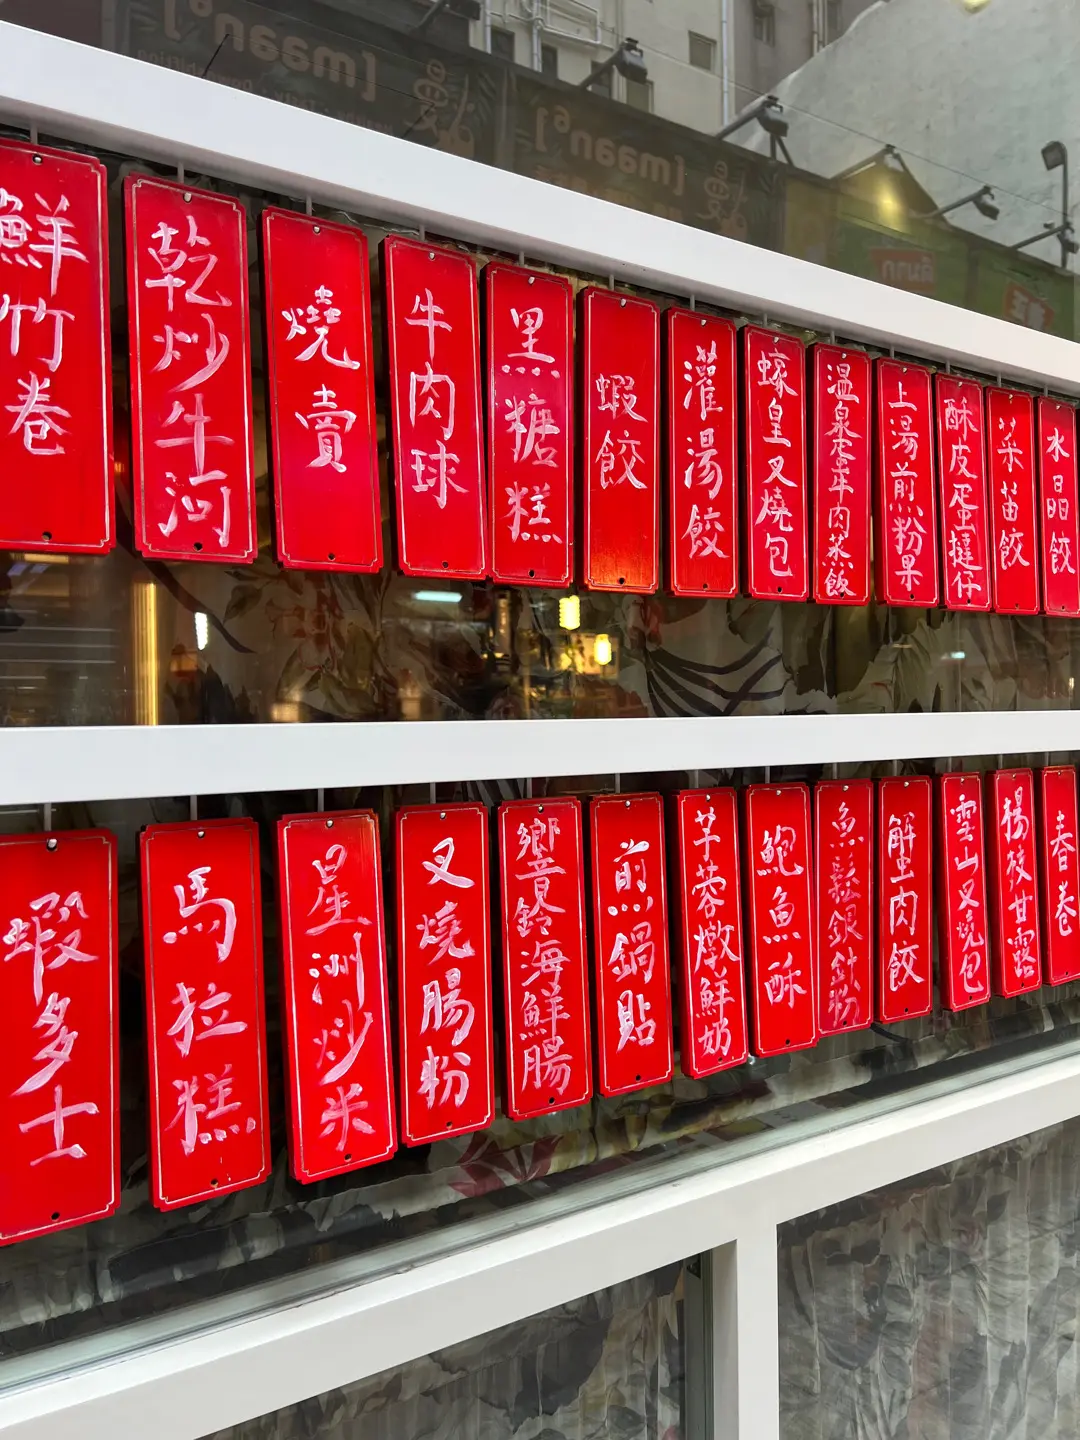 鮮竹卷
乾炒牛河
燒賣
牛肉球
黑糖糕
蝦餃
灌湯餃
蠔皇叉燒包
上湯煎粉果
酥皮蛋撻仔
菜苗餃
水晶餃
蝦多士
馬拉糕
星洲炒米
叉燒腸粉
響鈴海鮮腸
煎鍋貼
芋蓉燉鮮奶
鮑魚酥
魚鬆銀針粉
蟹肉餃
雪山叉燒包
楊枝甘露
春卷